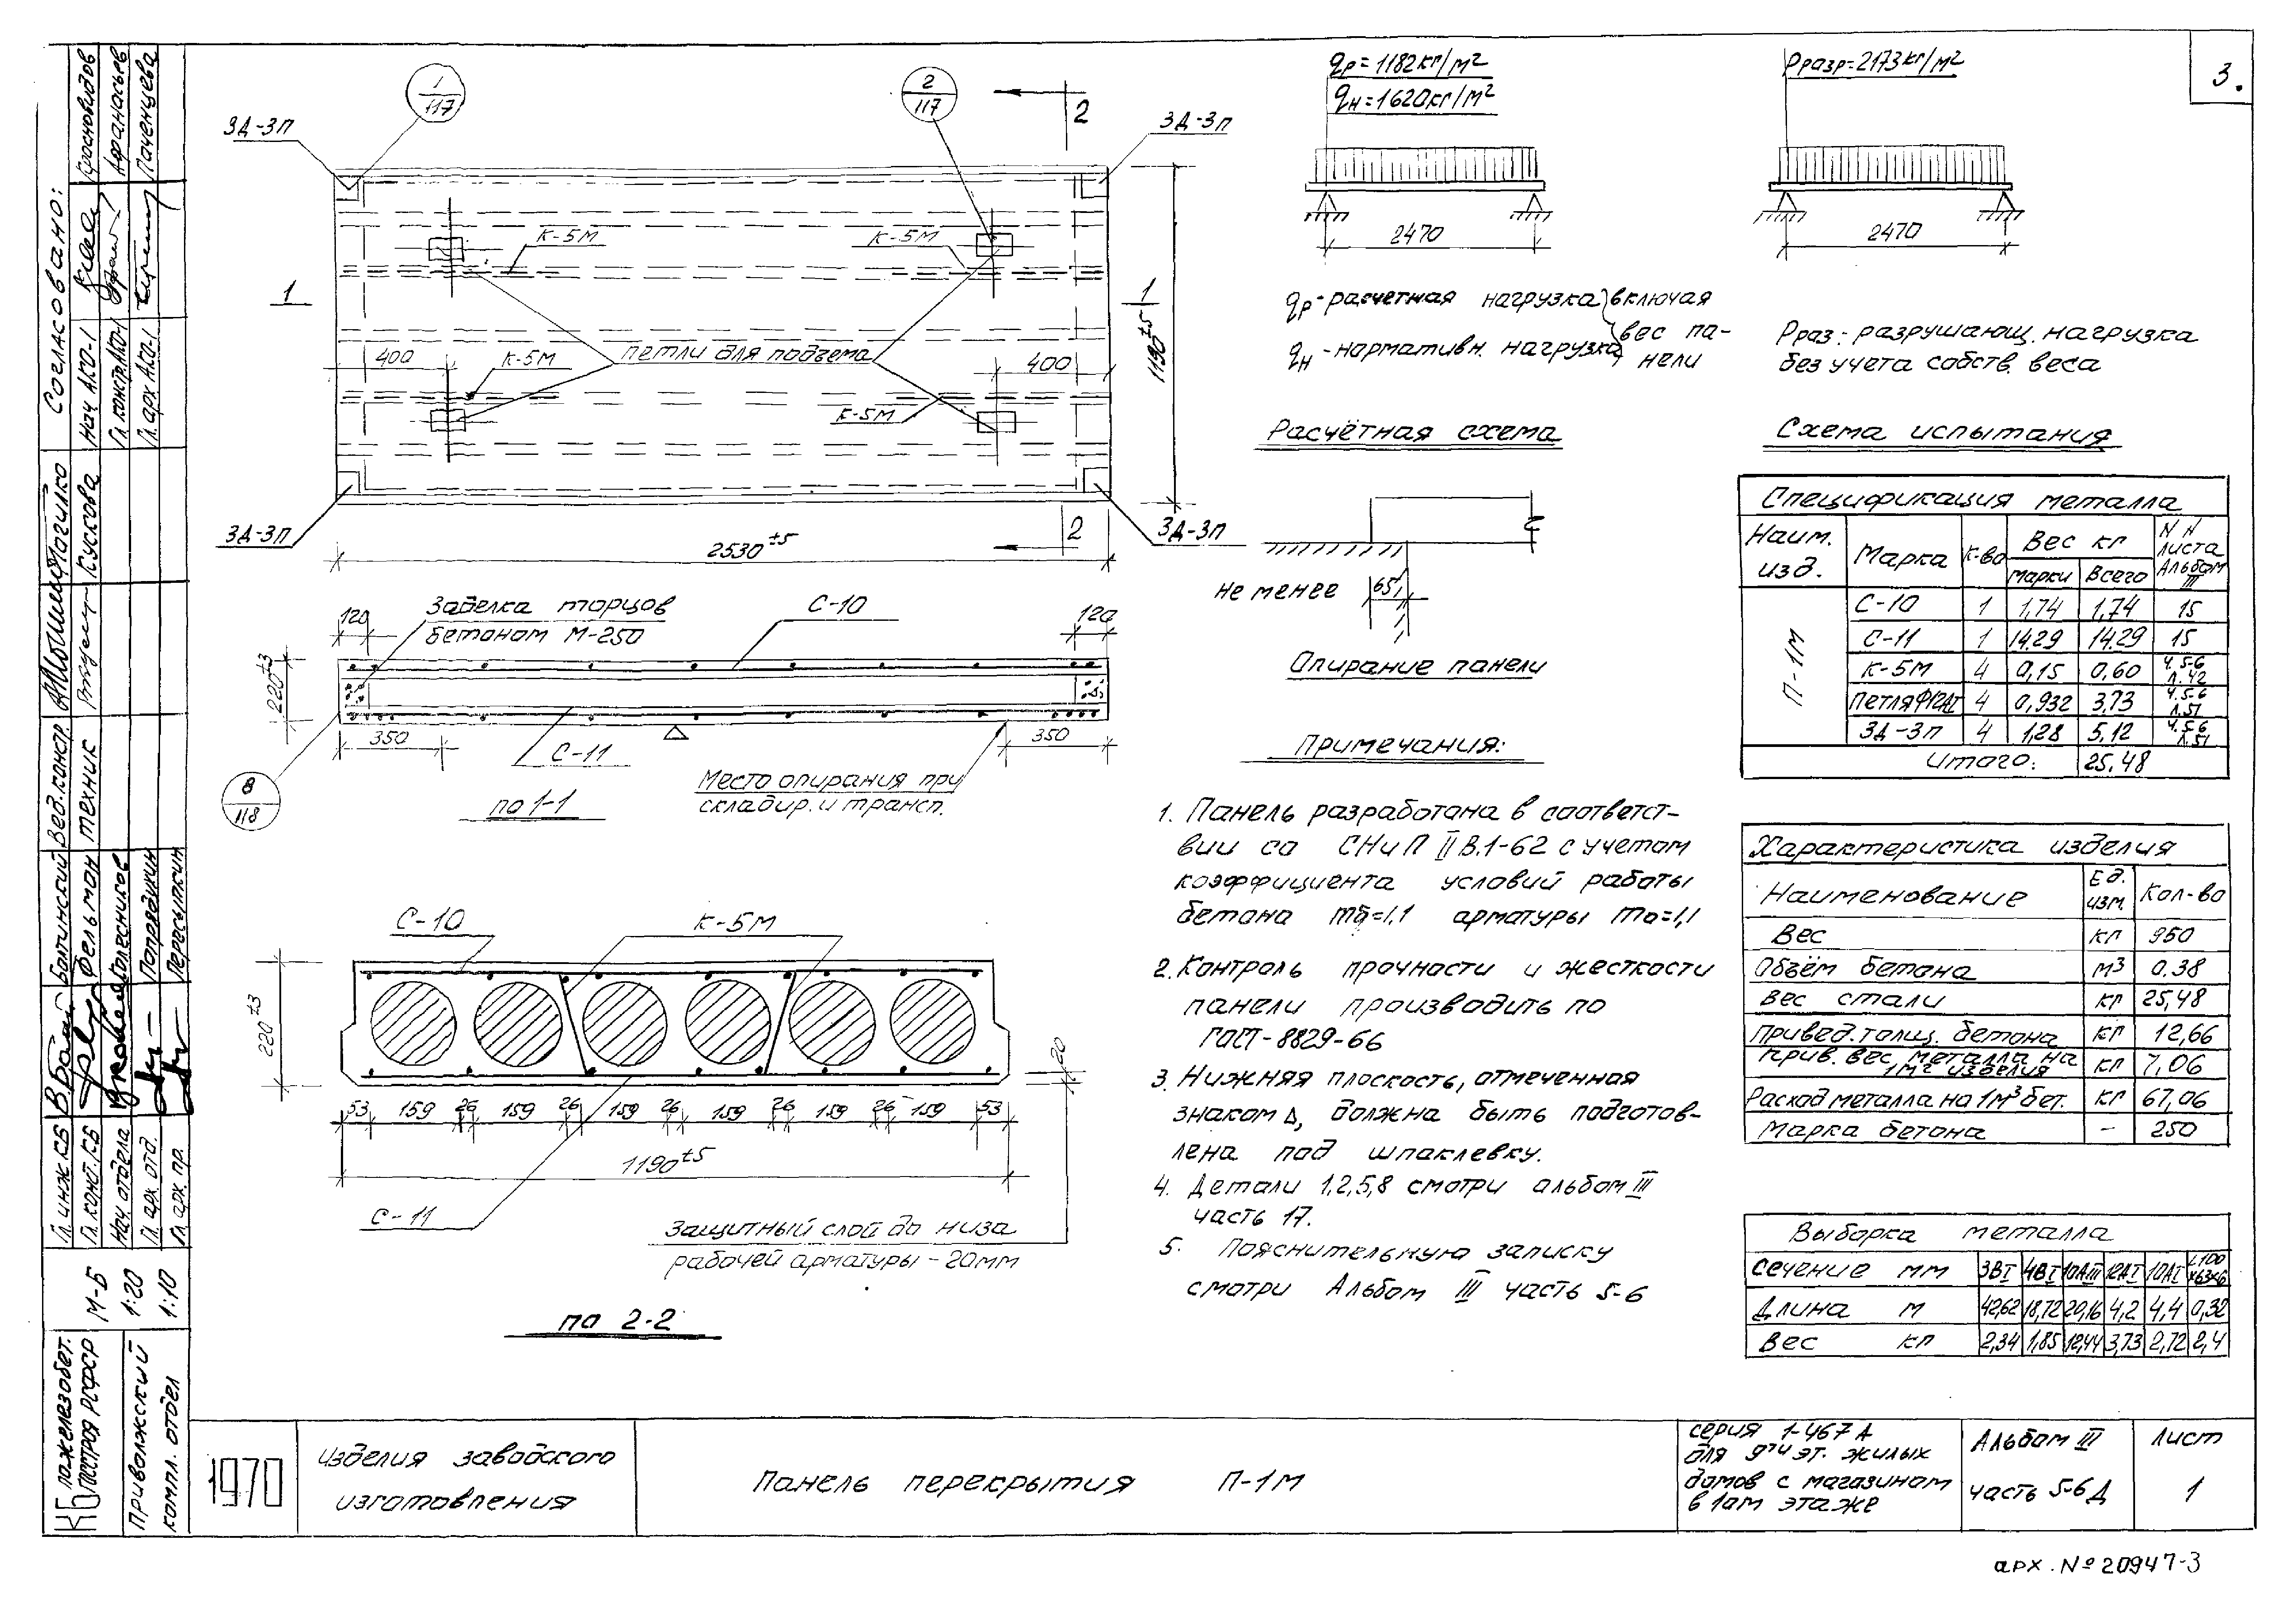 3.
1
117
2
117
2
ЗД-3п
ЗД-3п
К-5М
К-5М
1
1
400
К-5М
петли для подъема
400
1190±5
К-5М
ЗД-3п
2
ЗД-3п
2530±5
120
Заделка торцов
бетоном М-250
С-10
120
220±3
350
С-11
350
8
118
Место опирания при
складир. и трансп.
по 1-1
С-10
К-5М
220±3
20
53 159 26 159 26 159 26 159 26 159 26 159 53
1190±5
С-11
Защитный слой до низа
рабочей арматуры - 20мм
по 2-2
qр=1182кг/м²
qн=1620кг/м²
2470
qр-расчетная нагрузка включая
qн-нормативн. нагрузка вес па-
нели
Расчётная схема
Рразр=2173кг/м²
2470
Рраз: разрушающ. нагрузка
без учета собств. веса
Схема испытания
Не менее
65
Опирание панели
Примечания:
1. Панель разработана в соответст-
вии со СНиП II В.1-62 с учетом
коэффициента условий работы
бетона mб=1,1 арматуры mа=1,1
2. Контроль прочности и жесткости
панели производить по
ГОСТ-8829-66
3. Нижняя плоскость, отмеченная
знаком Δ, должна быть подготов-
лена под шпаклевку.
4. Детали 1,2,5,8 смотри альбом III
часть 17.
5. Пояснительную записку
смотри Альбом III часть 5-6
Спецификация металла
Наим. изд. Марка К-во Вес кг N N листа Альбом III
марки Всего
П-1М
С-10 1 1,74 1,74 15
С-11 1 14.29 14.29 15
К-5М 4 0,15 0,60 Ч. 5-6 Л. 42
Петля Ф12АI 4 0,932 3,73 Ч. 5-6 Л. 51
ЗД-3п 4 1,28 5,12 Ч. 5-6 Л. 51
Итого: 25.48
Характеристика изделия
Наименование Ед. изм. Кол-во
Вес кг 950
Объём бетона м3 0.38
Вес стали кг 25,48
Привед. толщ. бетона кг 12,66
Прив. вес металла на 1м² изделия кг 7,06
Расход металла на 1м³ бет. кг 67,06
Марка бетона - 250
Выборка металла
Сечение мм 3ВI 4ВI 10АIII 12АI 10АI L100х63х6
Длина м 42,62 18,72 20,16 4,2 4,4 0,32
Вес кг 2,34 1,85 12,44 3,73 2,72 2,4
Согласовано:
Нач АКО-1 Красновидов
Гл. констр. АКО-1 Афанасьев
Гл. арх АКО-1 Паченцева
Вед. констр.
техник Кускова
Гл. инж. КБ Болтинский
Гл. конст. КБ Фельдман
Нач. отдела Колесников
Гл. арх. отд. Попрядукин
Гл. арх. пр. Пересыпкин
М-Б 1:20 1:10
КБ по железобет.
Госстроя РСФСР
Приволжский
компл. отдел
1970
Изделия заводского
изготовления
Панель перекрытия П-1М
серия 1-467 А
для 9ти эт. жилых
домов с магазином
в 1ом этаже
Альбом III
часть 5-6 Д
Лист
1
арх. № 20947-3